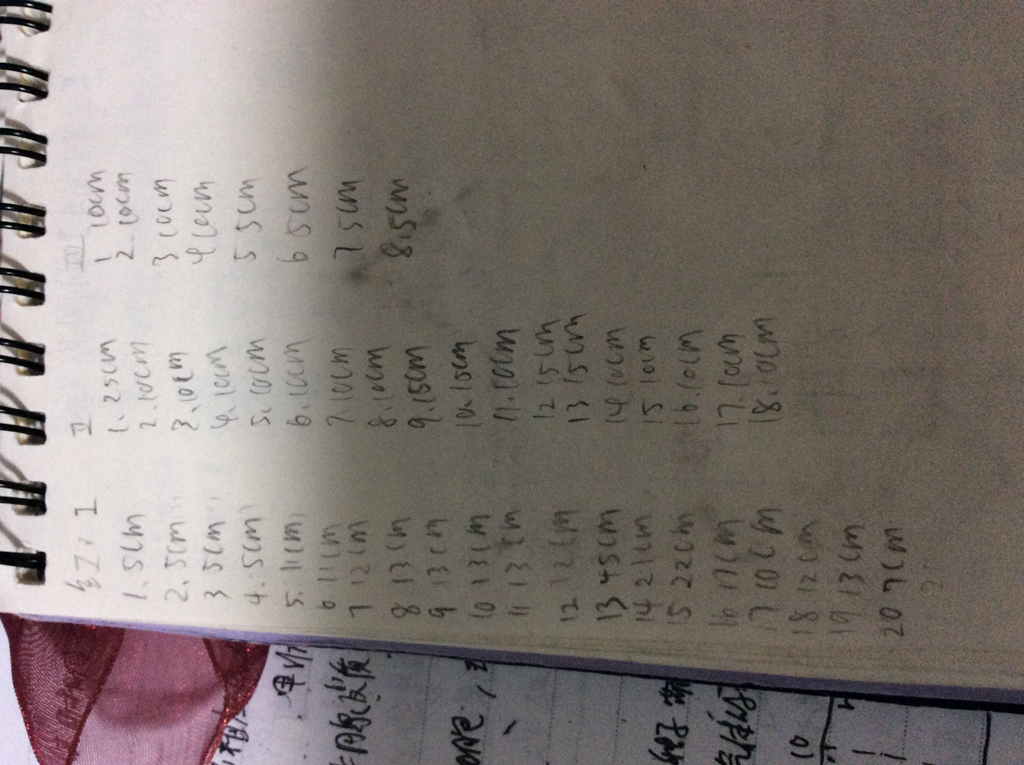 红I: I
1. 5cm
2. 5cm
3 5cm
4. 5cm
5. 11cm
6 11cm
7 12cm
8 13cm
9 13cm
10 13cm
11 13cm
12 12cm
13 45cm
14 21cm
15 22cm
16 17cm
17 10cm
18 12cm
19 13cm
20 7cm
II
1. 25cm
2. 10cm
3. 10cm
4. 10cm
5. 10cm
6. 10cm
7. 10cm
8. 10cm
9. 15cm
10. 15cm
11. 10cm
12 15cm
13 15cm
14 10cm
15 10cm
16. 10cm
17. 10cm
18. 10cm
III
1 10cm
2. 10cm
3 10cm
4 10cm
5 5cm
6 5cm
7 5cm
8. 5cm